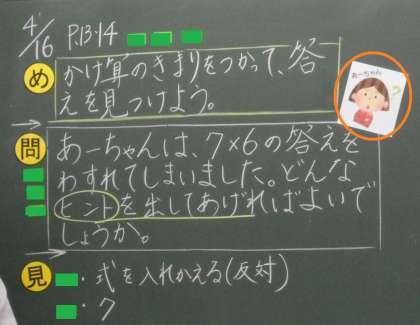 4/16 P.13・14
め かけ算のきまりをつかって、答
えを見つけよう。
あーちゃん
?
問 あーちゃんは、7×6の答えを
わすれてしまいました。どんな
ヒントを出してあげればよいで
しょうか。
見 ・式を入れかえる(反対)
・7